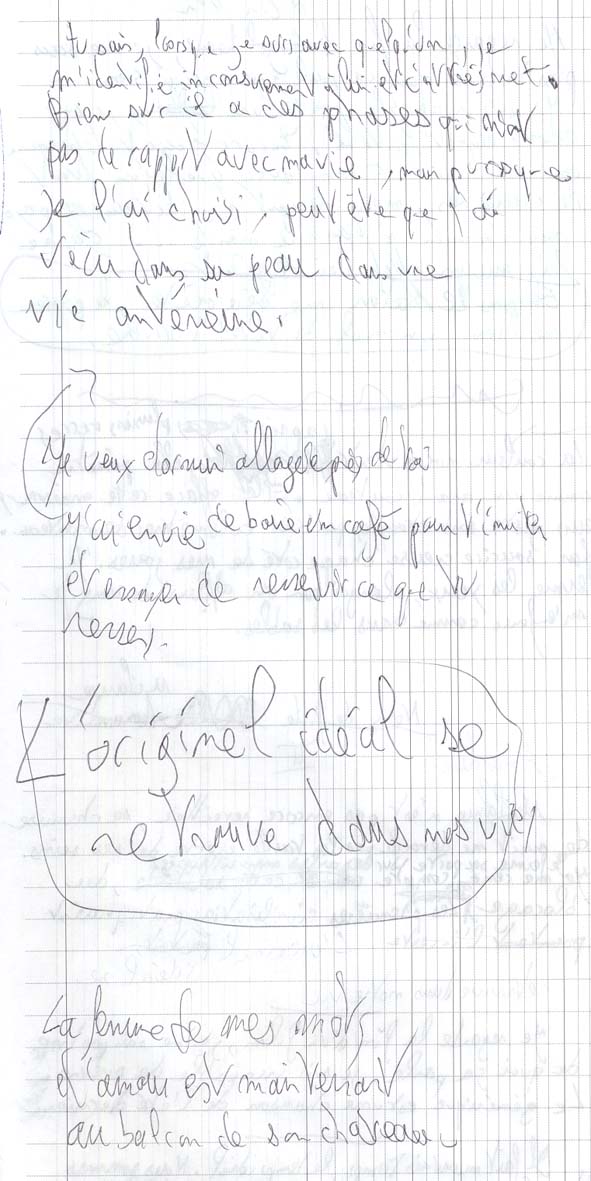 tu sais, lorsque je suis avec quelqu'un, je
m'identifie inconsciement à lui et
Bien sur il a des phases qui n'ont
pas de rapport avec ma vie, mais puisque
je l'ai choisi, peut être que j'ai
vécu dans sa peau dans une
vie antérieure.
Je veux dormir allongée près de toi
j'ai envie de boire un café pour t'imiter
et essayer de ressentir ce que tu
ressens.
L'original idéal se
retrouve dans nos vies
La femme de mes mots
d'amour est maintenant
au balcon de son château.